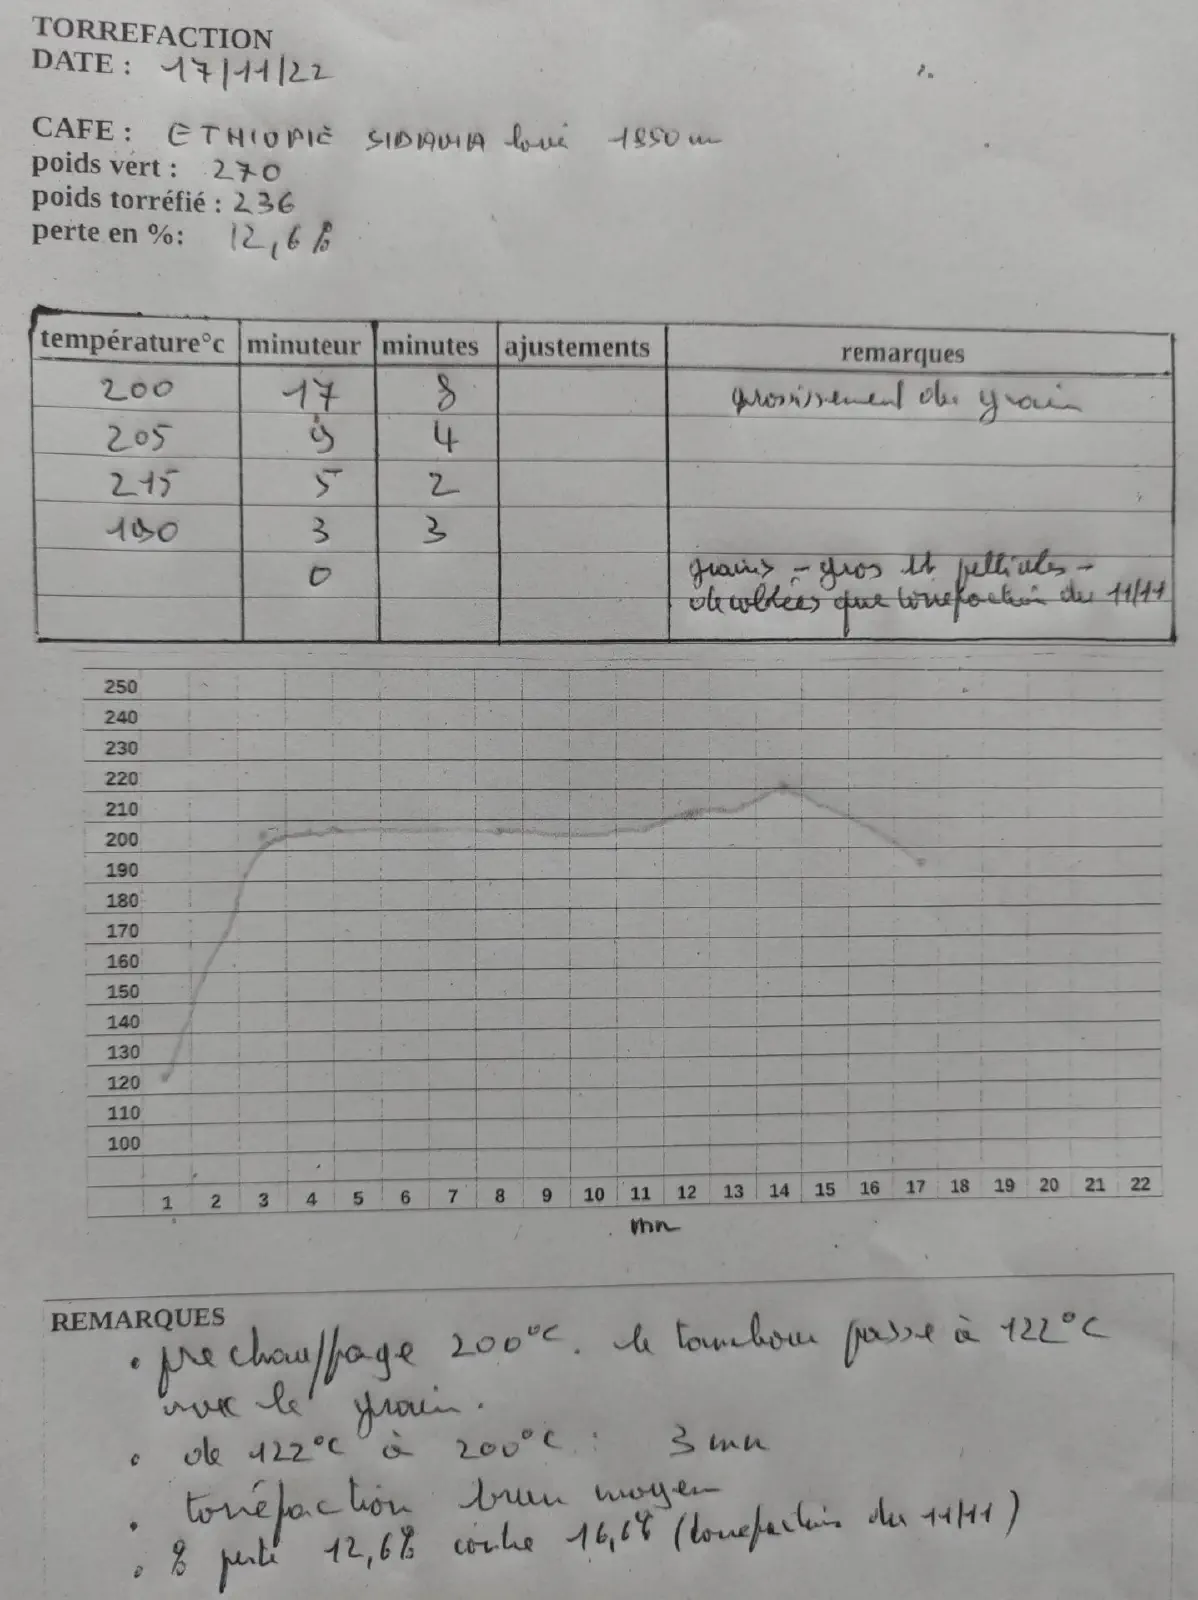 TORREFACTION
DATE : 17/11/22
CAFE : ETHIOPIE SIDAMA lavé 1850 m
poids vert : 270
poids torréfié : 236
perte en %: 12,6 %
température°c minuteur minutes ajustements remarques
200 17 8 grossissement du grain
205 9 4
215 5 2
190 3 3
0 grains - gros et pellicules -
décollées que torréfaction du 11/11
250
240
230
220
210
200
190
180
170
160
150
140
130
120
110
100
1 2 3 4 5 6 7 8 9 10 11 12 13 14 15 16 17 18 19 20 21 22
mn
REMARQUES
• prechauffage 200°C. le tambour passe à 122°C
avec le grain.
• de 122°C à 200°C : 3 mn
• torréfaction brun moyen
• % perte 12,6% contre 16,6% (torrefaction du 11/11)